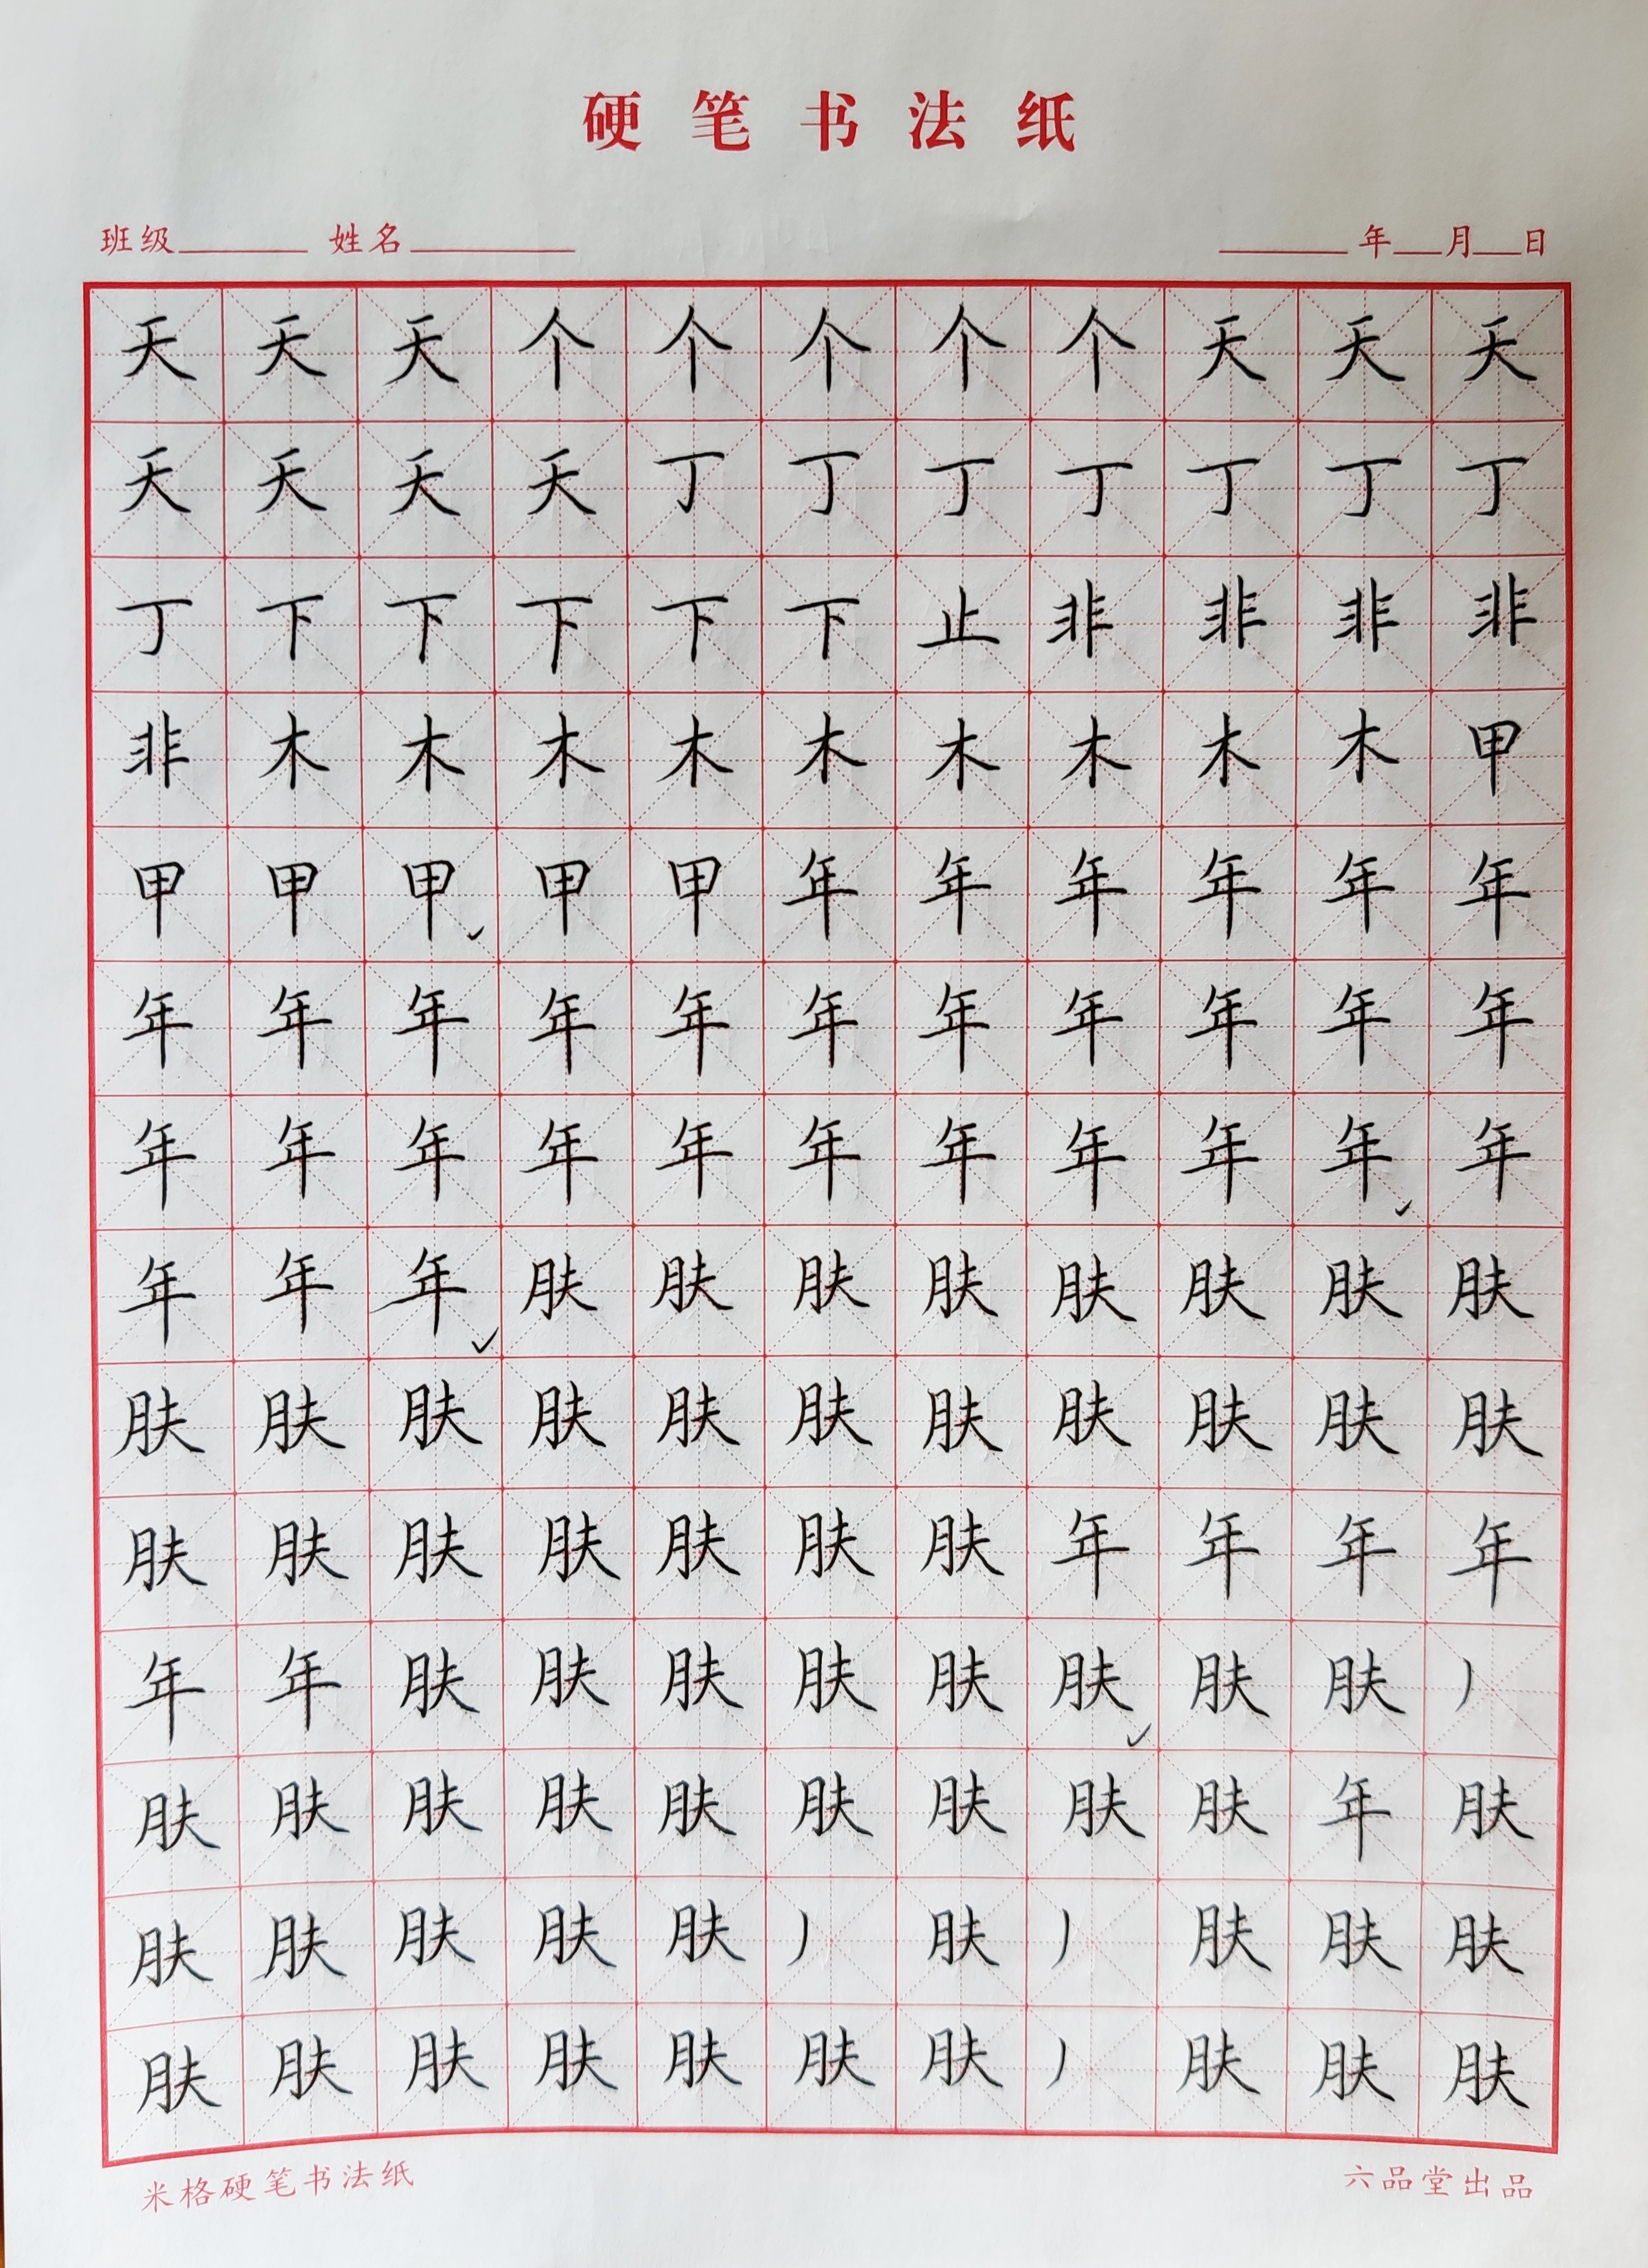 硬笔书法纸
班级 姓名 年 月 日
天天天个个个个个天天天
天天天天丁丁丁丁丁丁丁
丁下下下下下止非非非非
非木木木木木木木木木甲
甲甲甲甲甲年年年年年年
年年年年年年年年年年年
年年年年年年年年年年年
年年年肤肤肤肤肤肤肤肤
肤肤肤肤肤肤肤肤肤肤肤
肤肤肤肤肤肤肤年年年年
年年肤肤肤肤肤肤肤肤丿
肤肤肤肤肤肤肤肤肤年肤
肤肤肤肤肤丿肤丿肤肤肤
肤肤肤肤肤肤肤丿肤肤肤
米格硬笔书法纸 六品堂出品